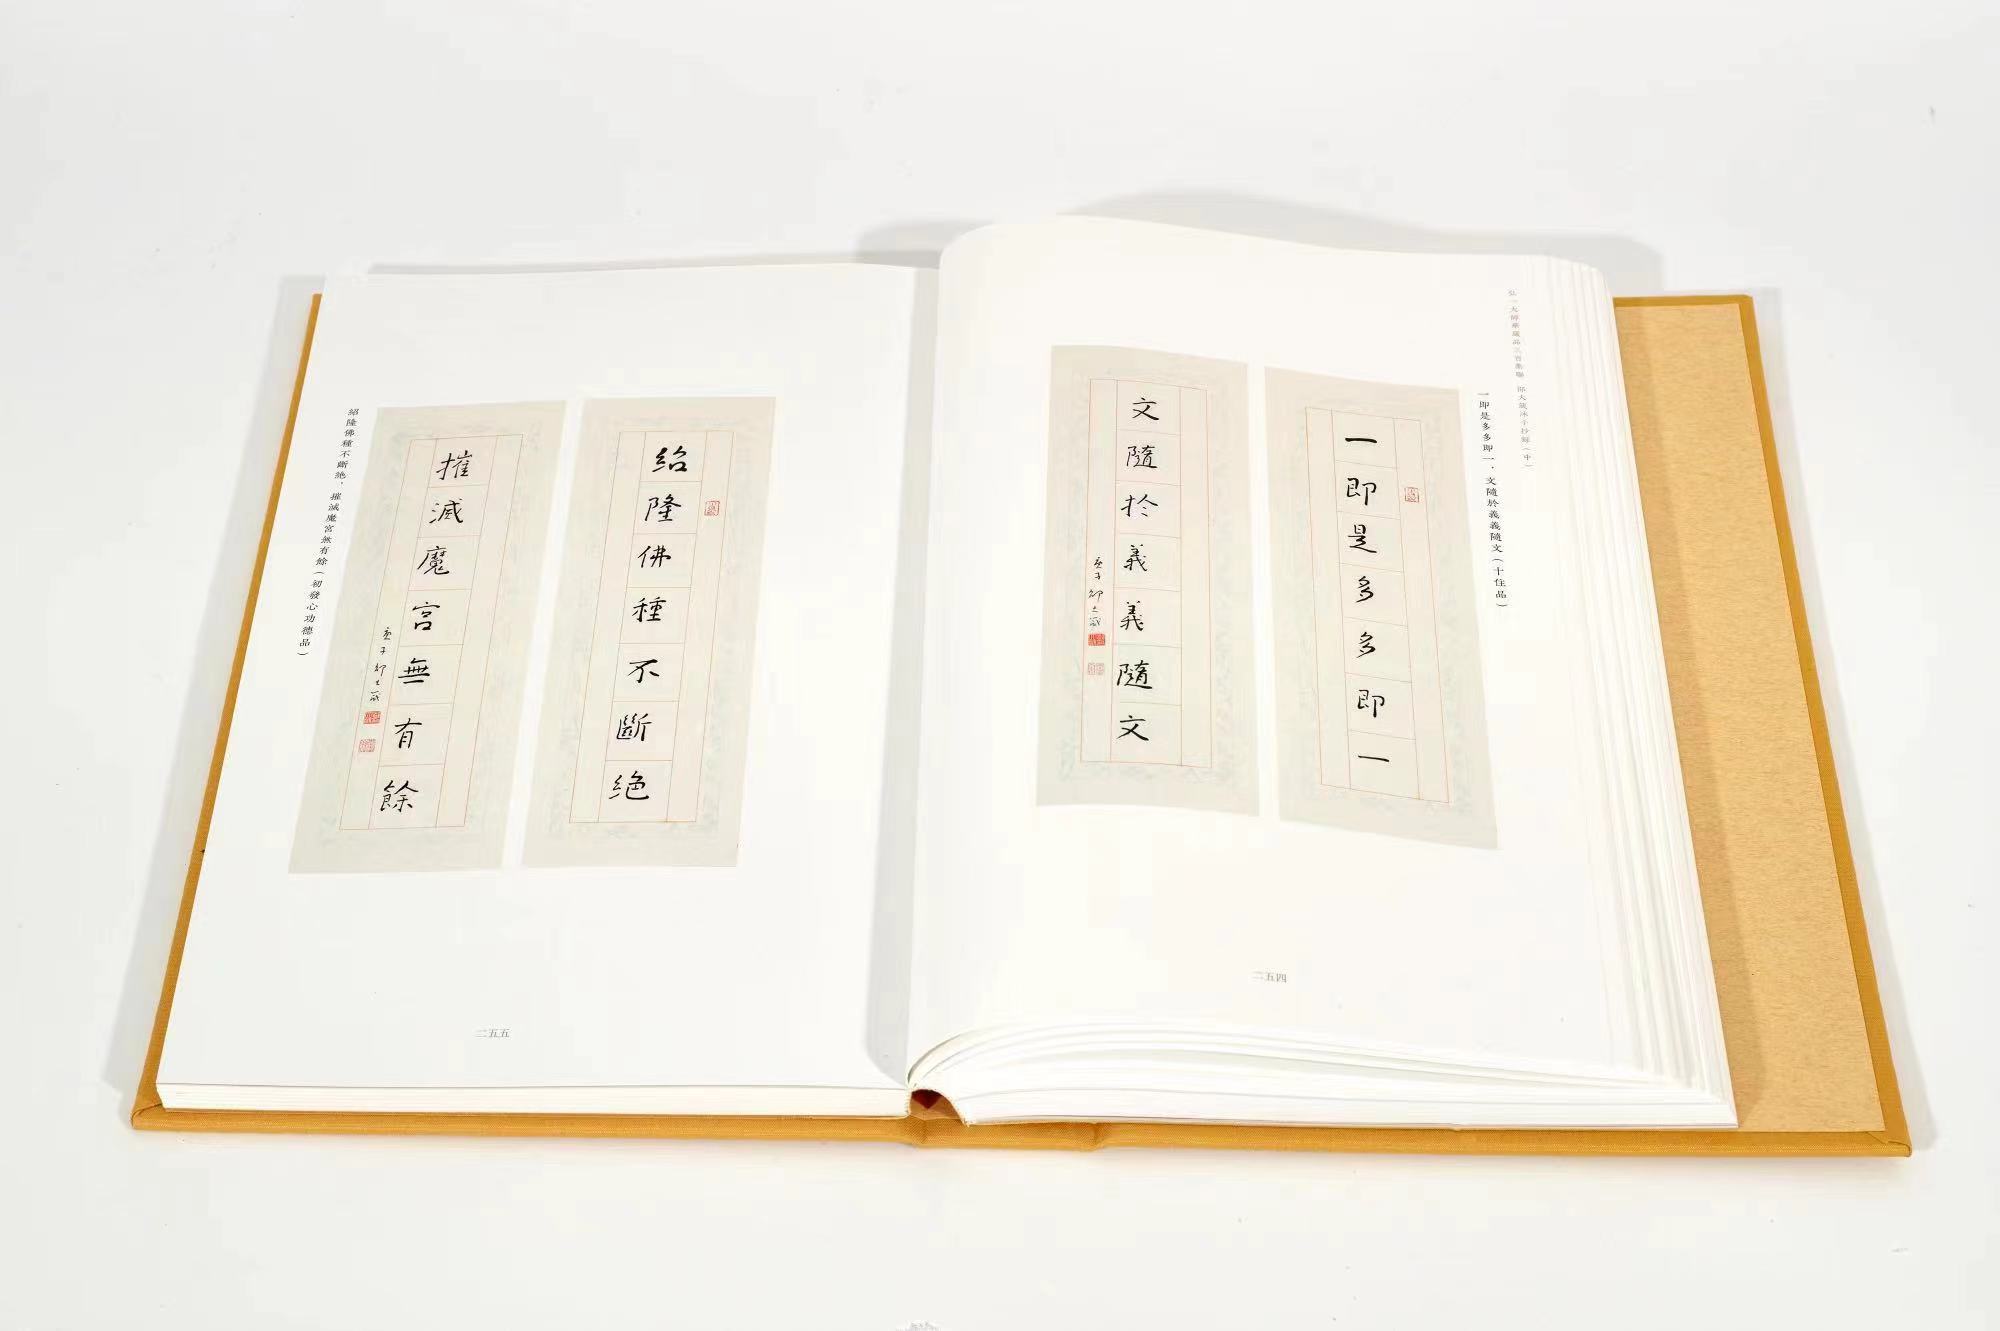 弘一大師華嚴品三百集聯 邵大箴沐手抄録(中)
一即是多多即一，文隨於義義隨文(十住品)
一即是多多即一
文隨於義義隨文
庚子邵大箴
二五四
紹隆佛種不斷絶
摧滅魔宮無有餘
庚子邵大箴
紹隆佛種不斷絶，摧滅魔宮無有餘(初發心功德品)
二五五